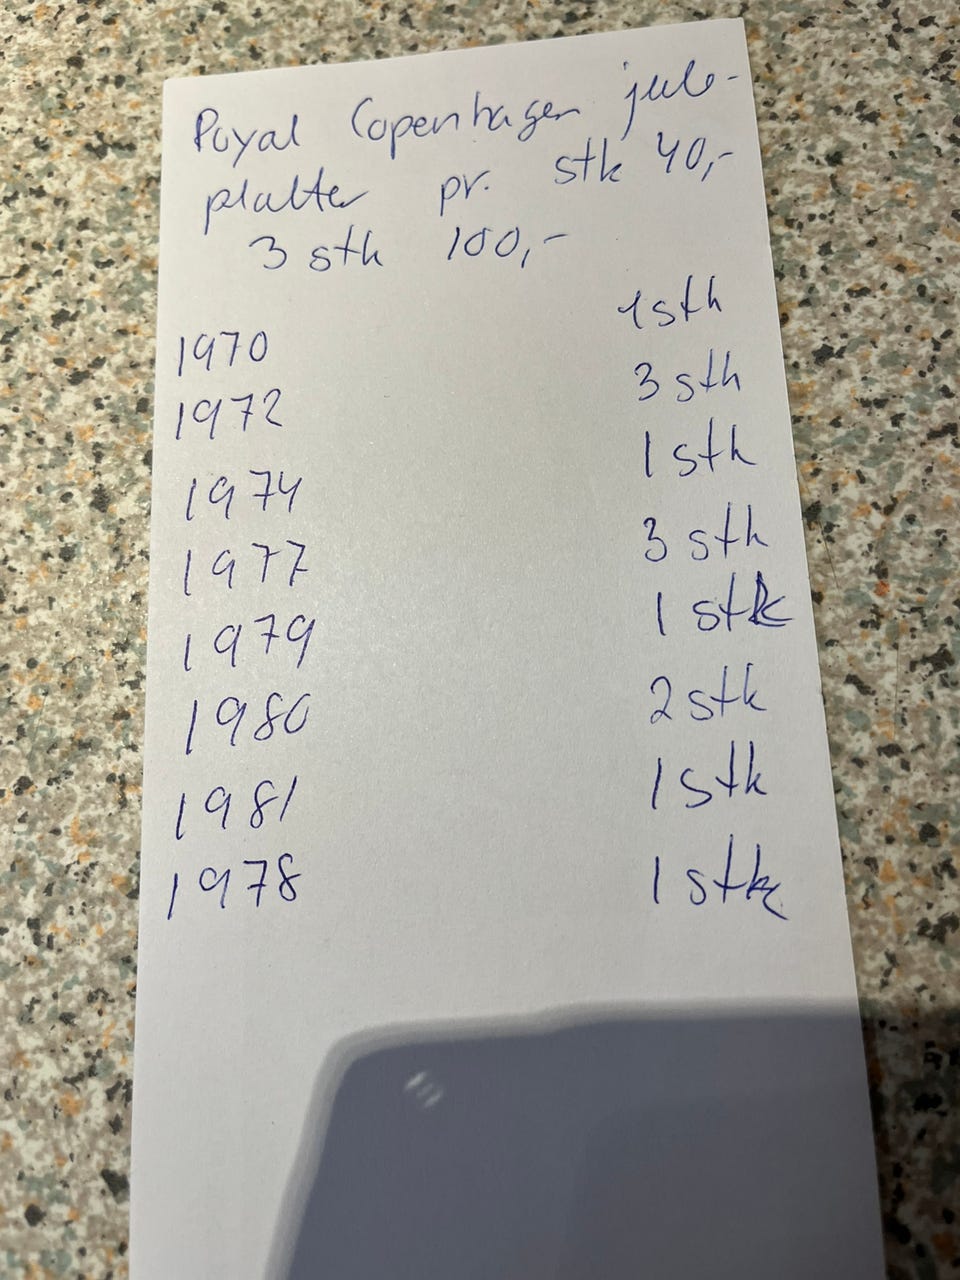 Royal Copenhagen jule-
platter pr. stk 40,-
3 stk 100,-
1970 1 stk
1972 3 stk
1974 1 stk
1977 3 stk
1979 1 stk
1980 2 stk
1981 1 stk
1978 1 stk